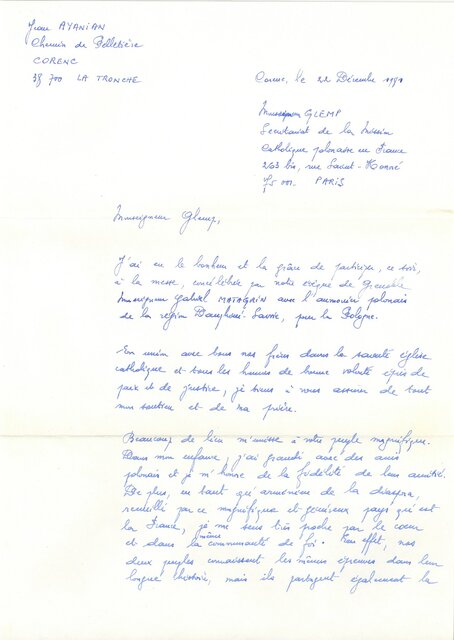 Jean AYANIAN
Chemin de Pelletière
CORENC
38 700 LA TRONCHE
Corenc, le 22 Décembre 1981
Monseigneur GLEMP
Secrétariat de la Mission
Catholique polonaise en France
263 bis, rue Saint-Honoré
75 001. PARIS
Monseigneur Glemp,
J'ai eu le bonheur et la grâce de participer, ce soir,
à la messe, concélébrée par notre évêque de Grenoble
Monseigneur Gabriel MATAGRIN avec l'aumônier polonais
de la région Dauphiné-Savoie, pour la Pologne.
En union avec tous nos frères dans la sainte église
catholique et tous les hommes de bonne volonté épris de
paix et de justice, je tiens à vous assurer de tout
mon soutien et de ma prière.
Beaucoup de liens m'unissent à votre peuple magnifique.
Dans mon enfance, j'ai grandi avec des amis
polonais et je m'honore de la fidélité de leur amitié.
De plus, en tant qu'arménien de la diaspora,
recueilli par ce magnifique et généreux pays qu'est
la France, je me sens très proche par le cœur
et dans la même communauté de foi. En effet, nos
deux peuples connaissent les mêmes épreuves dans leur
longue histoire, mais ils partagent également la